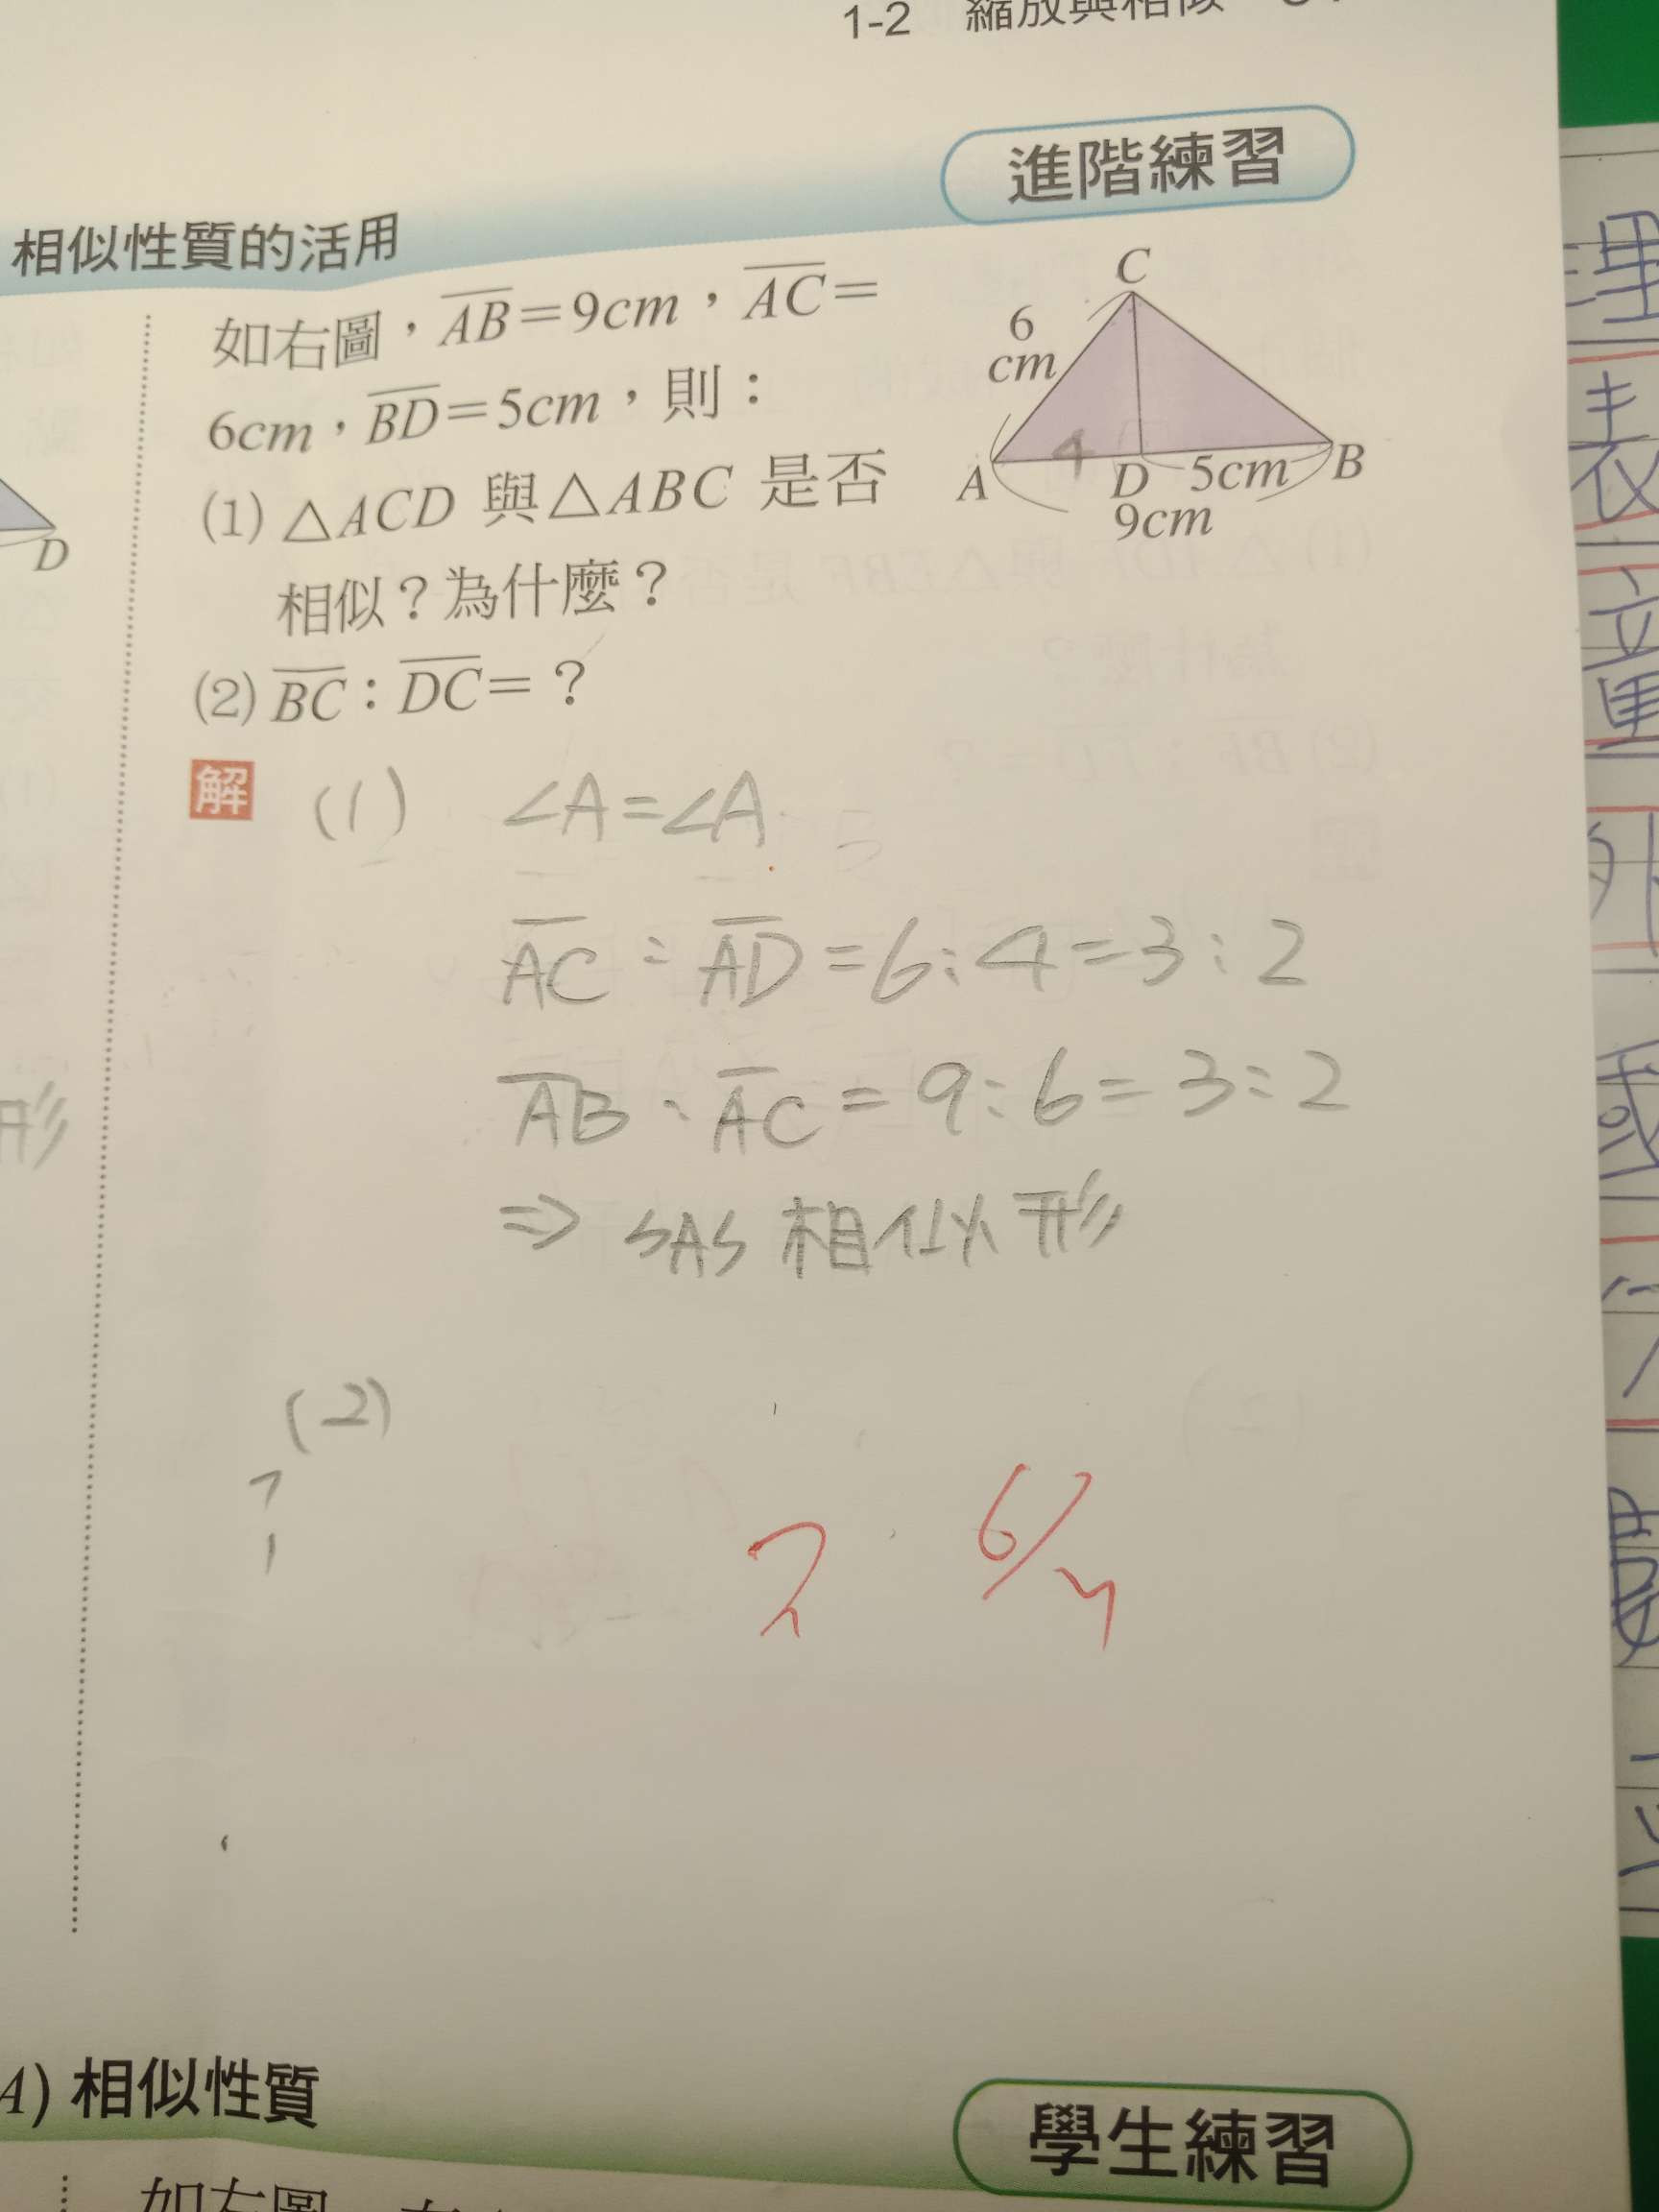 1-2 縮放與相似
進階練習
相似性質的活用
如右圖，AB=9cm，AC=
6cm，BD=5cm，則：
(1) △ACD 與△ABC 是否
相似？為什麼？
(2) BC：DC=？
C
6
cm
A
4
D
5cm
B
9cm
D
解
(1) ∠A=∠A
AC：AD=6：4=3：2
AB：AC=9：6=3：2
⇒ SAS 相似形
形
(2)
?
6/
A) 相似性質
學生練習
如右圖
理
表
童
外
國